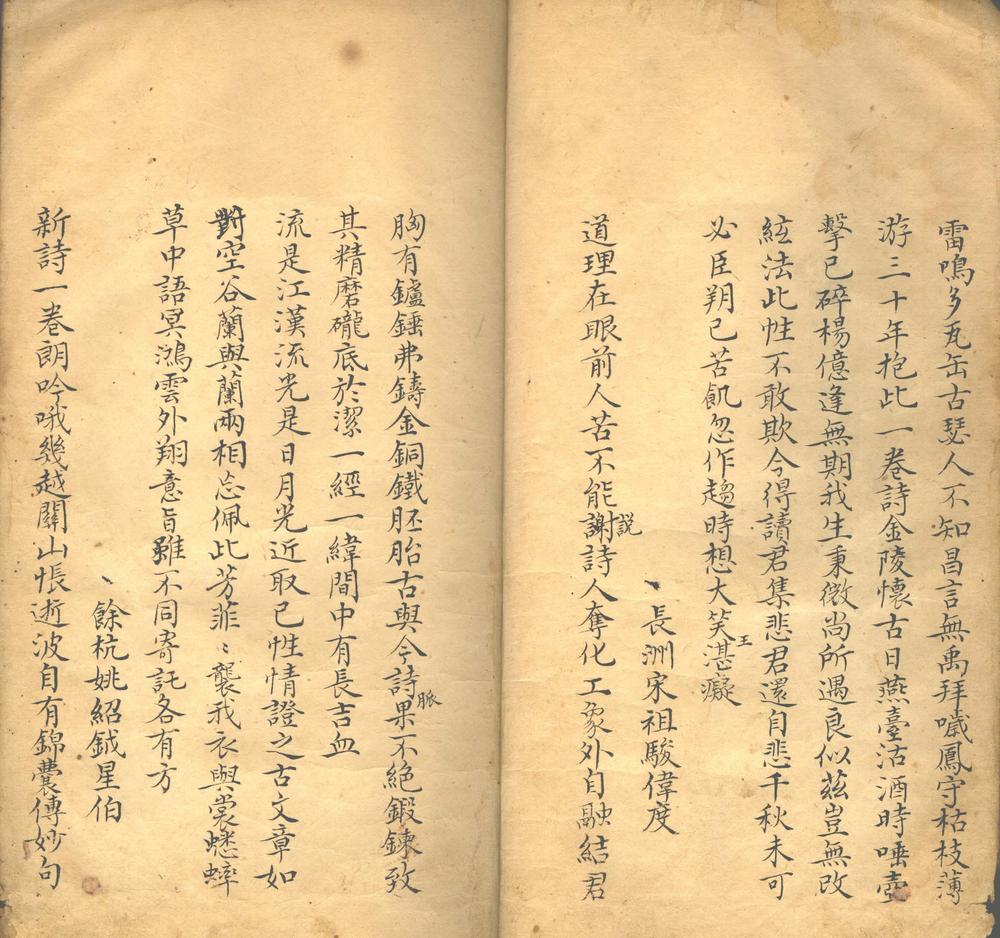 雷鳴多瓦缶古瑟人不知昌言無禹拜噦鳳守枯枝薄
游三十年抱此一卷詩金陵懷古日燕臺沽酒時唾壺
擊已碎楊億逢無期我生秉微尚所遇良似茲豈無改
絃法此性不敢欺今得讀君集悲君還自悲千秋未可
必臣朔已苦飢忽作趨時想大笑湛癡
王
長洲宋祖駿偉度
道理在眼前人苦不能謝詩人奪化工象外自融結君
説
胸有鑪錘弗鑄金銅鐵胚胎古與今詩果不絕鍛鍊致
脈
其精磨礲底於潔一經一緯間中有長吉血
流是江漢流光是日月光近取已性情證之古文章如
對空谷蘭與蘭兩相忘佩此芳菲〻襲我衣與裳蟋蟀
草中語冥鴻雲外翔意旨雖不同寄託各有方
餘杭姚紹鉞星伯
新詩一卷朗吟哦幾越關山悵逝波自有錦囊傳妙句